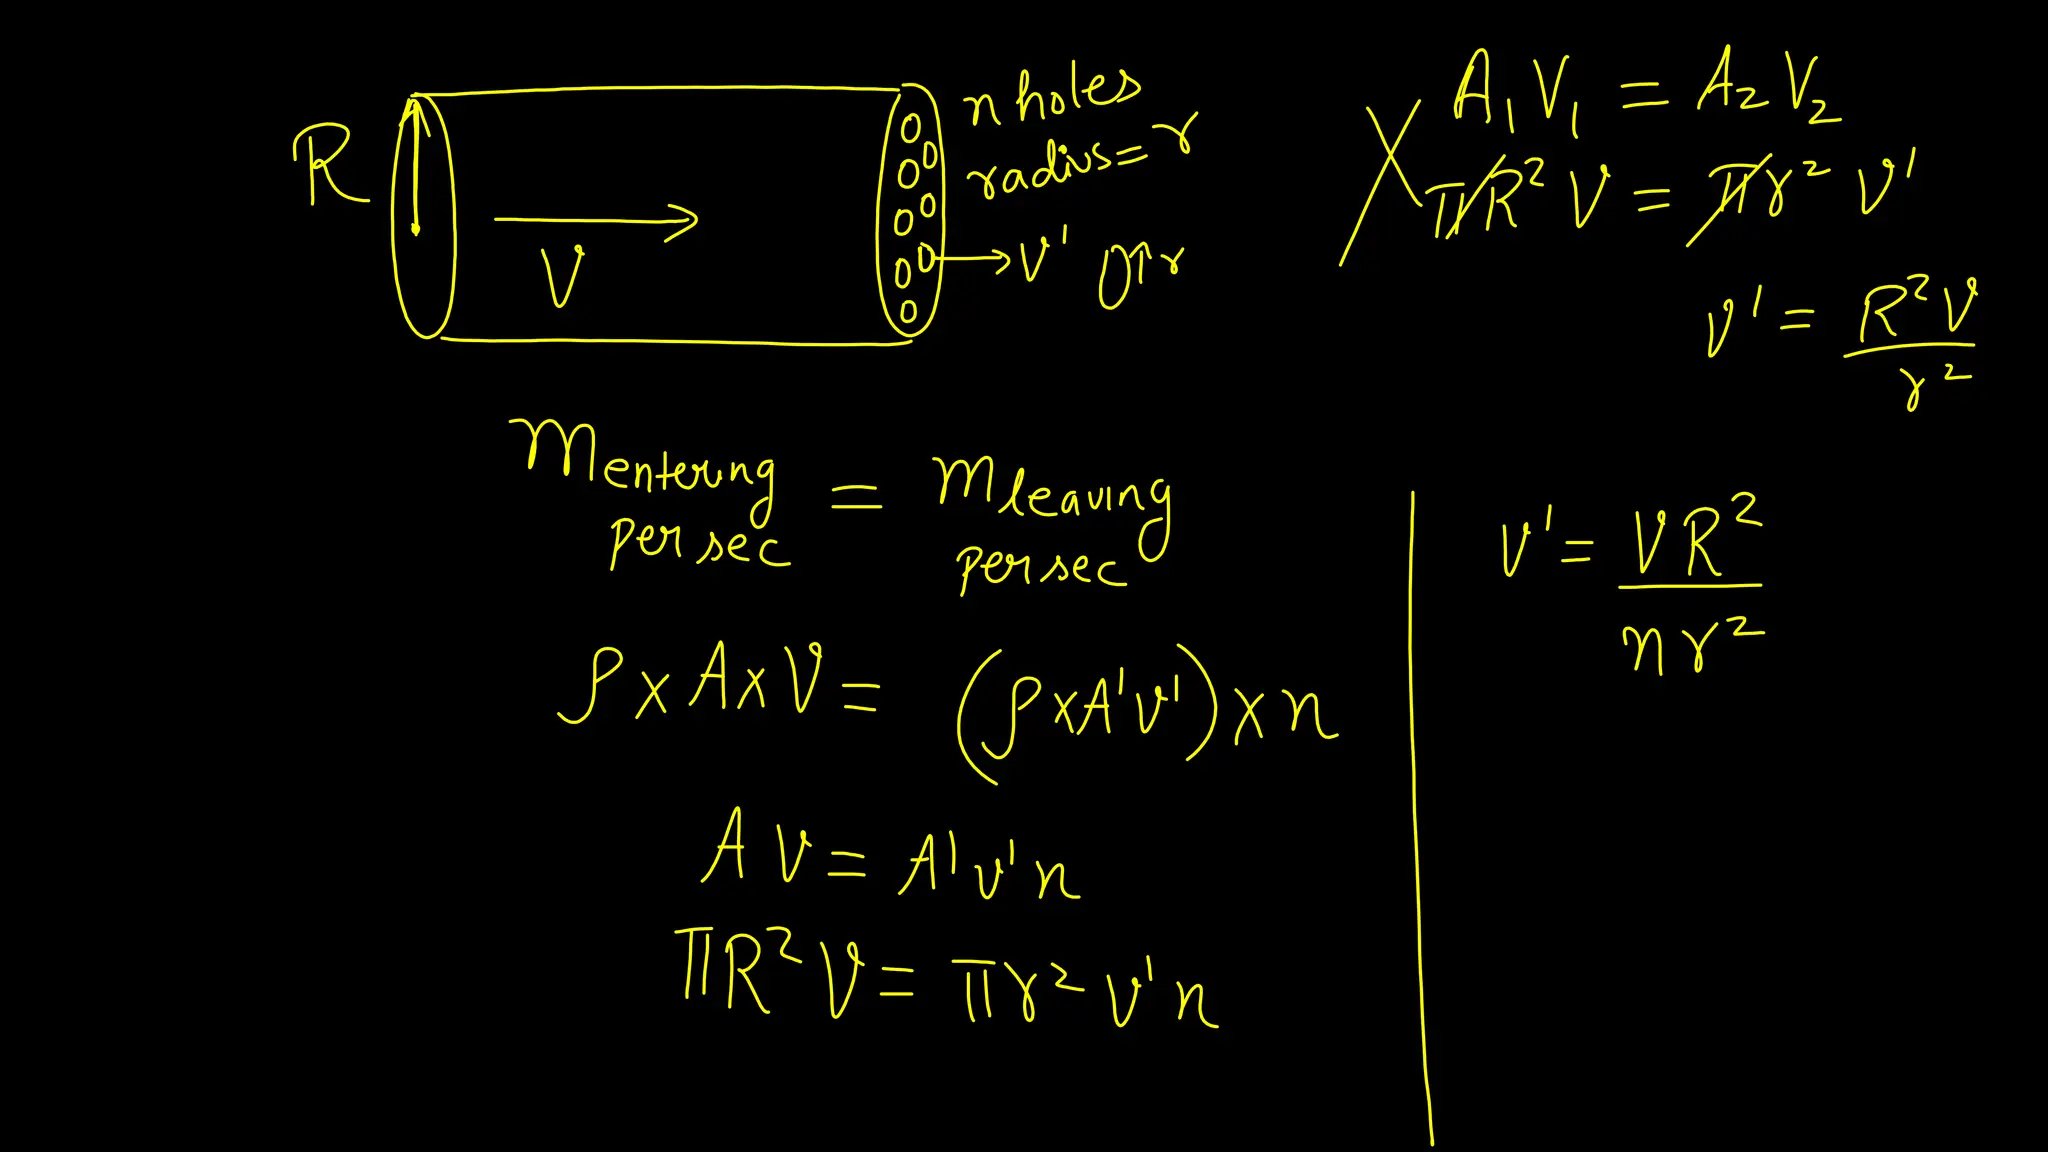 R
V
n holes
radius = r
v' πr
A₁V₁ = A₂V₂
πR²V = πr²v'
v' = R²V / r²
m entering per sec = m leaving per sec
ρ × A × V = (ρ × A'v') × n
AV = A'v'n
πR²V = πr²v'n
v' = VR² / nr²